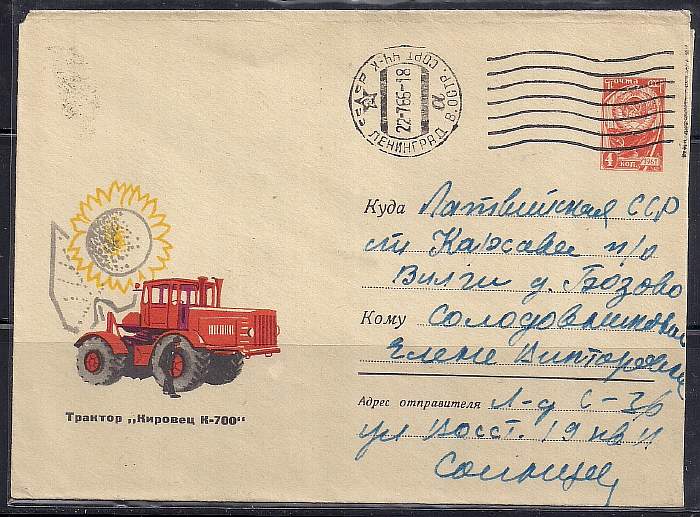 ЛЕНИНГРАД В.ОСТР. СОРТ. ЧЧ-К
СССР
22-7.66-18
а
ПОЧТА СССР
4 КОП. 1961
Куда Латвийская ССР
ст Карсава п/о
Вилги д. Бозово
Кому Солодовниковой
Елене Викторовне
Адрес отправителя Л-д С-36
ул Восст. 19 кв 11
Солнцев
Трактор „Кировец К-700“